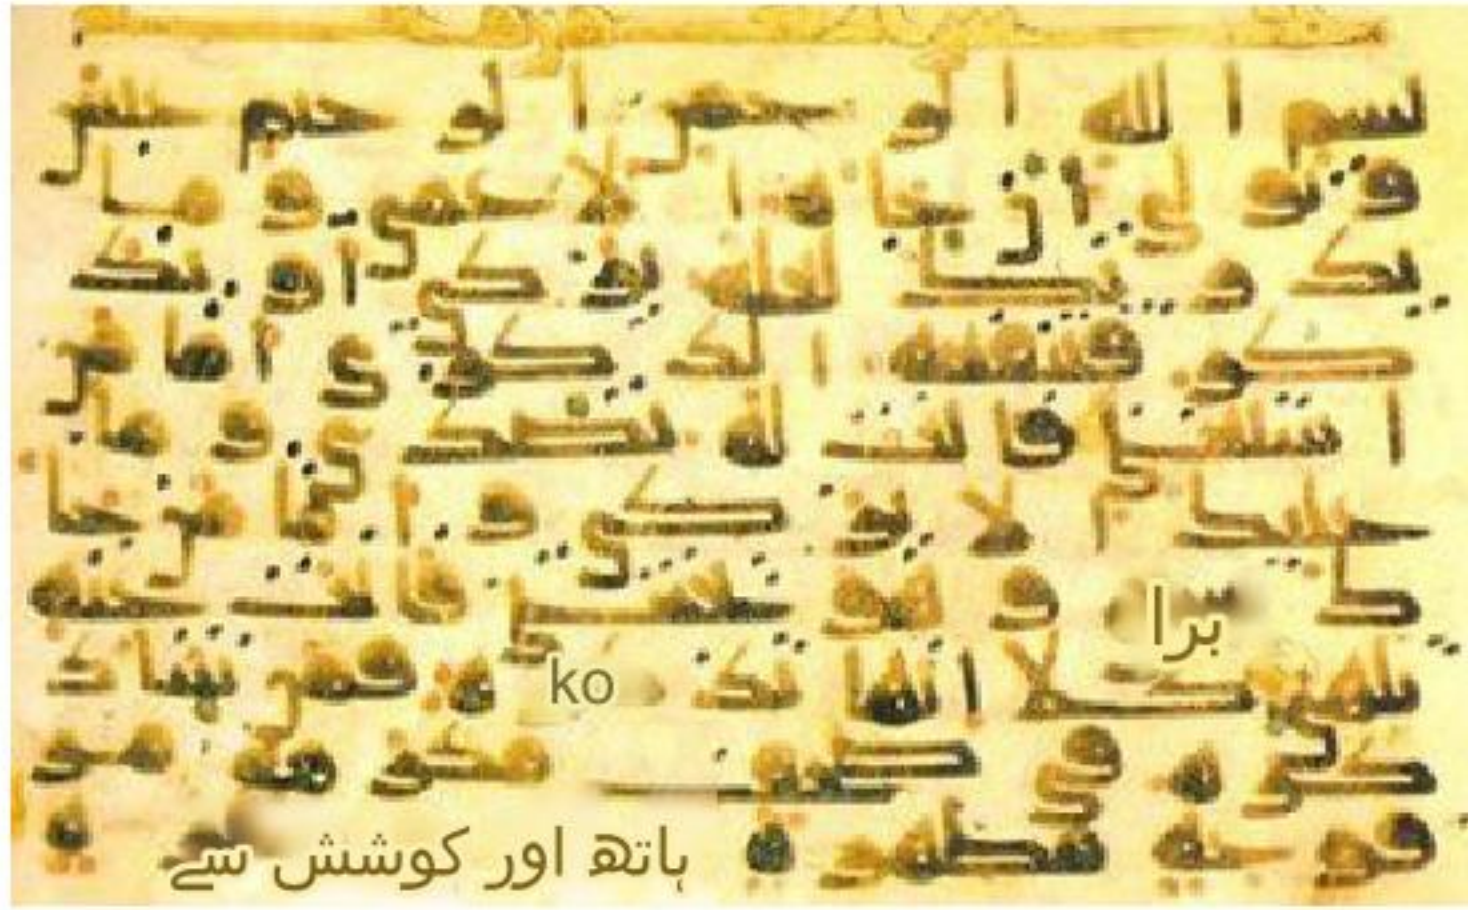 بسم الله الرحمن الرحيم عبس
وتولى أن جاءه الأعمى وما
يدريك لعله يزكى أو يذ
كر فتنفعه الذكرى أما من
استغنى فأنت له تصدى وما
عليك ألا يزكى وأما من جا
ك برا وهو يخشى فأنت عنه
تلهى كلا إنها ko فمن شا ذ
كره في صحف مكرمة مر
فوعة مطهرة ہاتھ اور کوشش سے